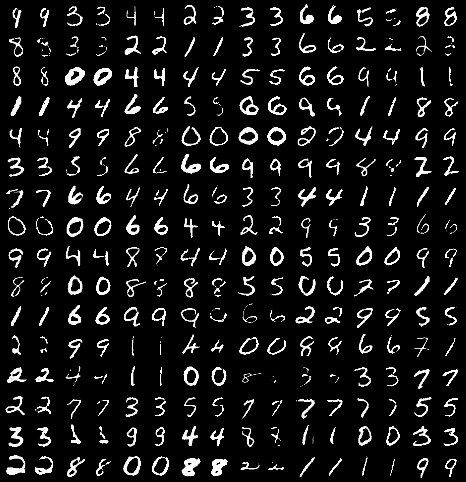 9 9 3 3 4 4 2 2 3 3 6 6 5 5 8 8
8 8 3 3 2 2 1 1 3 3 6 6 2 2 2 2
8 8 0 0 4 4 4 4 5 5 6 6 9 9 1 1
1 1 4 4 6 6 5 5 6 6 9 9 1 1 8 8
4 4 9 9 8 8 0 0 0 0 2 2 4 4 9 9
3 3 5 5 6 6 6 6 9 9 9 9 8 8 2 2
7 7 6 6 4 4 6 6 3 3 4 4 1 1 1 1
0 0 0 0 6 6 4 4 2 2 9 9 3 3 6 6
9 9 4 4 8 8 4 4 0 0 5 5 0 0 9 9
8 8 0 0 8 8 8 8 5 5 0 0 7 7 1 1
1 1 6 6 9 9 9 6 6 2 2 9 9 5 5
2 2 9 9 1 1 4 4 0 0 8 8 6 6 7 1
2 2 4 1 1 0 0 8 3 3 3 7 7
2 2 7 7 3 3 5 5 7 7 7 7 7 7 5 5
3 3 1 1 9 9 4 4 8 8 1 1 0 0 3 3
2 2 8 8 0 0 8 8 2 2 1 1 1 1 9 9